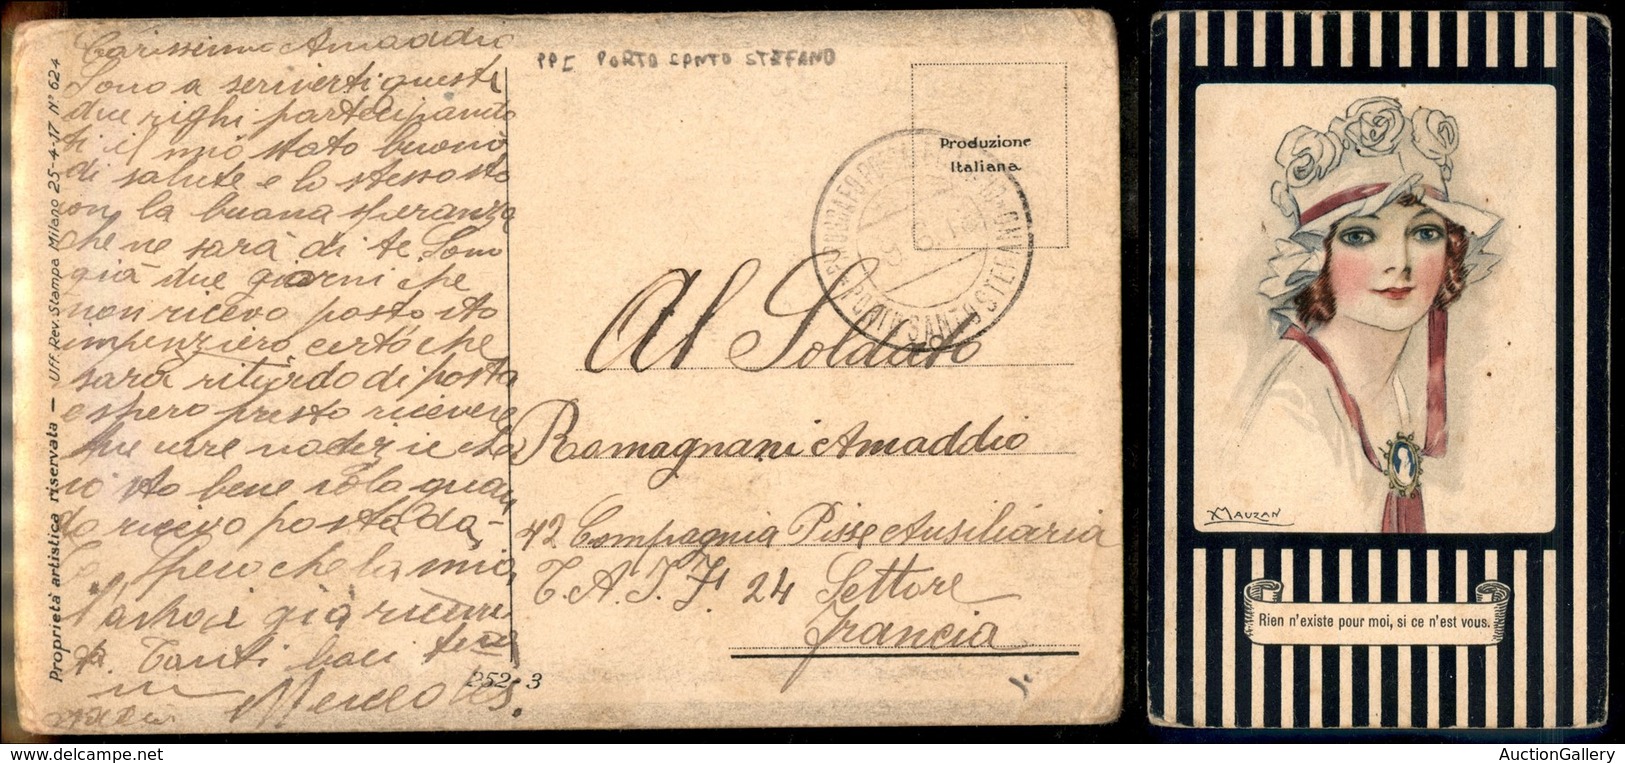 Carissimo Amaddio
Sono a scriverti queste
due righi partecipando
ti il mio stato buono
di salute e lo stesso sto
con la buona speranza
che ne sarà di te. Sono
già due giorni che
non ricevo posto sto
impenziero certo che
sarà ritardo di posta
e spero presto ricevere
tue care nodizie che
io sto bene solo quan
do ricevo posta da
te spero che la mia
l'avrai già ricevu
ta. Tanti baci tua
PPC PORTO SANTO STEFANO
Produzione
Italiana.
PORTO SANTO STEFANO
Al Soldato
Romagnani Amaddio
42 Compagnia Pisse Ausiliaria
T. A. I. F. 24 Settore
Francia
252-3
Proprietà artistica riservata — Uff. Rev. Stampa Milano 25-4-17 N° 624
MAUZAN
Rien n'existe pour moi, si ce n'est vous.
AuctionGallery